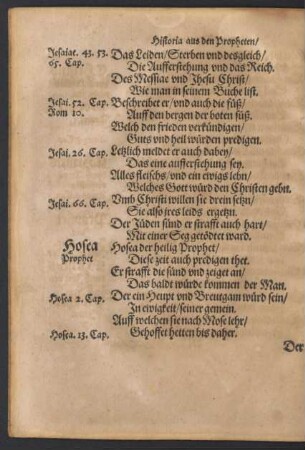 Historia aus den Propheten/
Jesaiae. 43. 53. Das Leiden/Sterben vnd desgleich/
65. Cap. Die Aufferstehung vnd das Reich.
Des Messiae vnd Jhesu Christ/
Wie man in seinem Buche list.
Jesai. 52. Cap. Beschreibet er/vnd auch die füß/
Rom 10. Auff den bergen der boten süß.
Welch den frieden verkündigen/
Guts vnd heil würden predigen.
Jesai. 26. Cap. Letzlich meldet er auch dabey/
Das eine aufferstehung sey.
Alles fleischs/vnd ein ewigs lebn/
Welches Gott würd den Christen gebn.
Jesai. 66. Cap. Vmb Christi willen sie drein setzn/
Sie also jres leids ergetzn.
Der Jüden sünd er strafft auch hart/
Mit einer Seg getödtet ward.
Hosea Hosea der heilig Prophet/
Prophet Diese zeit auch predigen thet.
Er strafft die sünd vnd zeiget an/
Das baldt würde kommen der Man.
Hosea 2. Cap. Der ein Heupt vnd Breutgam würd sein/
In ewigkeit/seiner gemein.
Auff welchen sie nach Mose lehr/
Hosea. 13. Cap. Gehoffet hetten bis daher.
Der